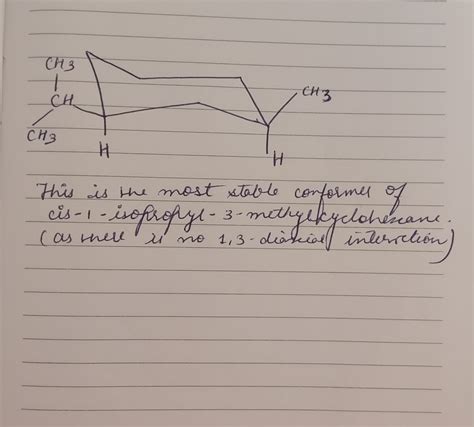 CH3
CH
CH3
H
CH3
H
This is the most stable conformer of
cis-1-isopropyl-3-methylcyclohexane.
(as there is no 1,3-diaxial interaction)